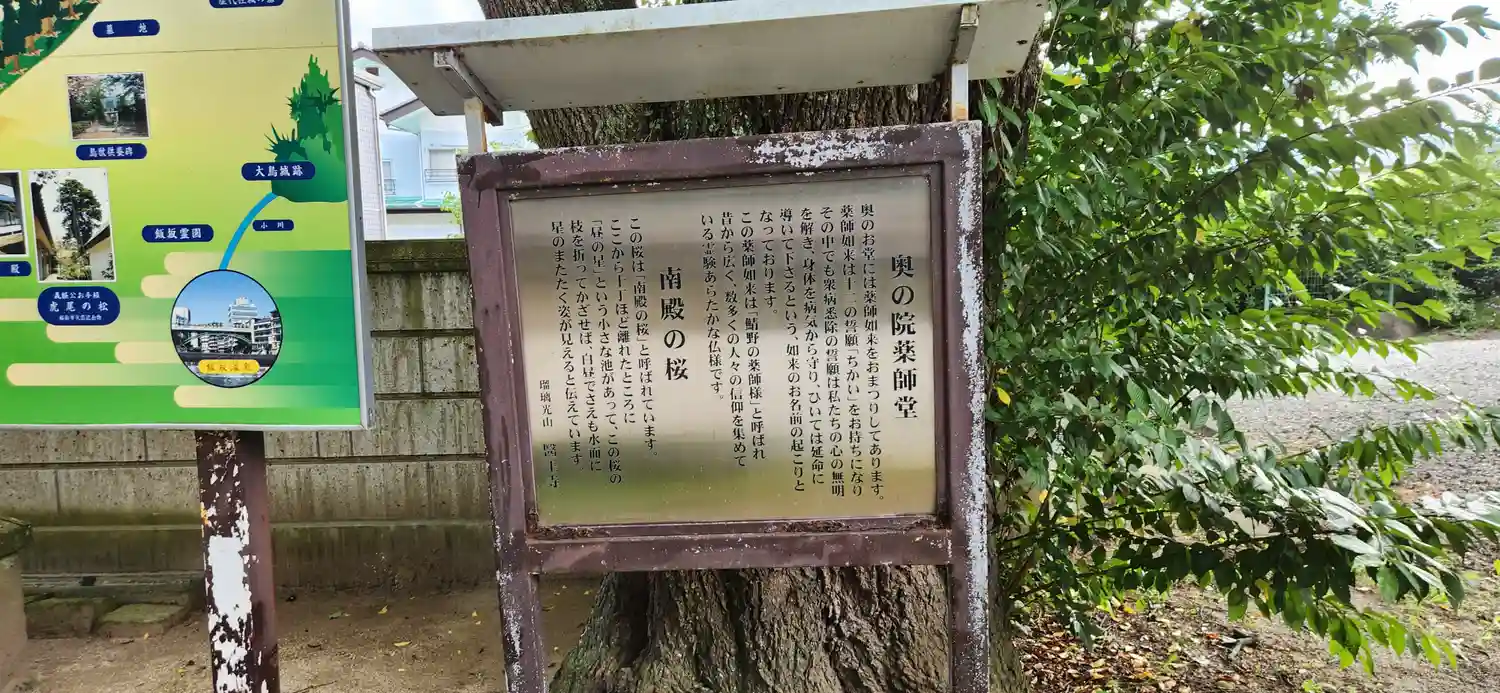 墓地
鳥獣供養碑
大鳥城跡
小川
飯坂霊園
殿
義経公お手植
虎尾の松
飯坂温泉
奥の院薬師堂
奥のお堂には薬師如来をおまつりしてあります。
薬師如来は十二の誓願「ちかい」をお持ちになり
その中でも衆病悉除の誓願は私たちの心の無明
を解き、身体を病気から守り、ひいては延命に
導いて下さるという、如来のお名前の起こりと
なっております。
この薬師如来は「鯖野の薬師様」と呼ばれ
昔から広く、数多くの人々の信仰を集めて
いる霊験あらたかな仏様です。
南殿の桜
この桜は「南殿の桜」と呼ばれています。
ここから十丁ほど離れたところに
「昼の星」という小さな池があって、この桜の
枝を折ってかざせば、白昼でさえも水面に
星のまたたく姿が見えると伝えています
瑠璃光山 醫王寺